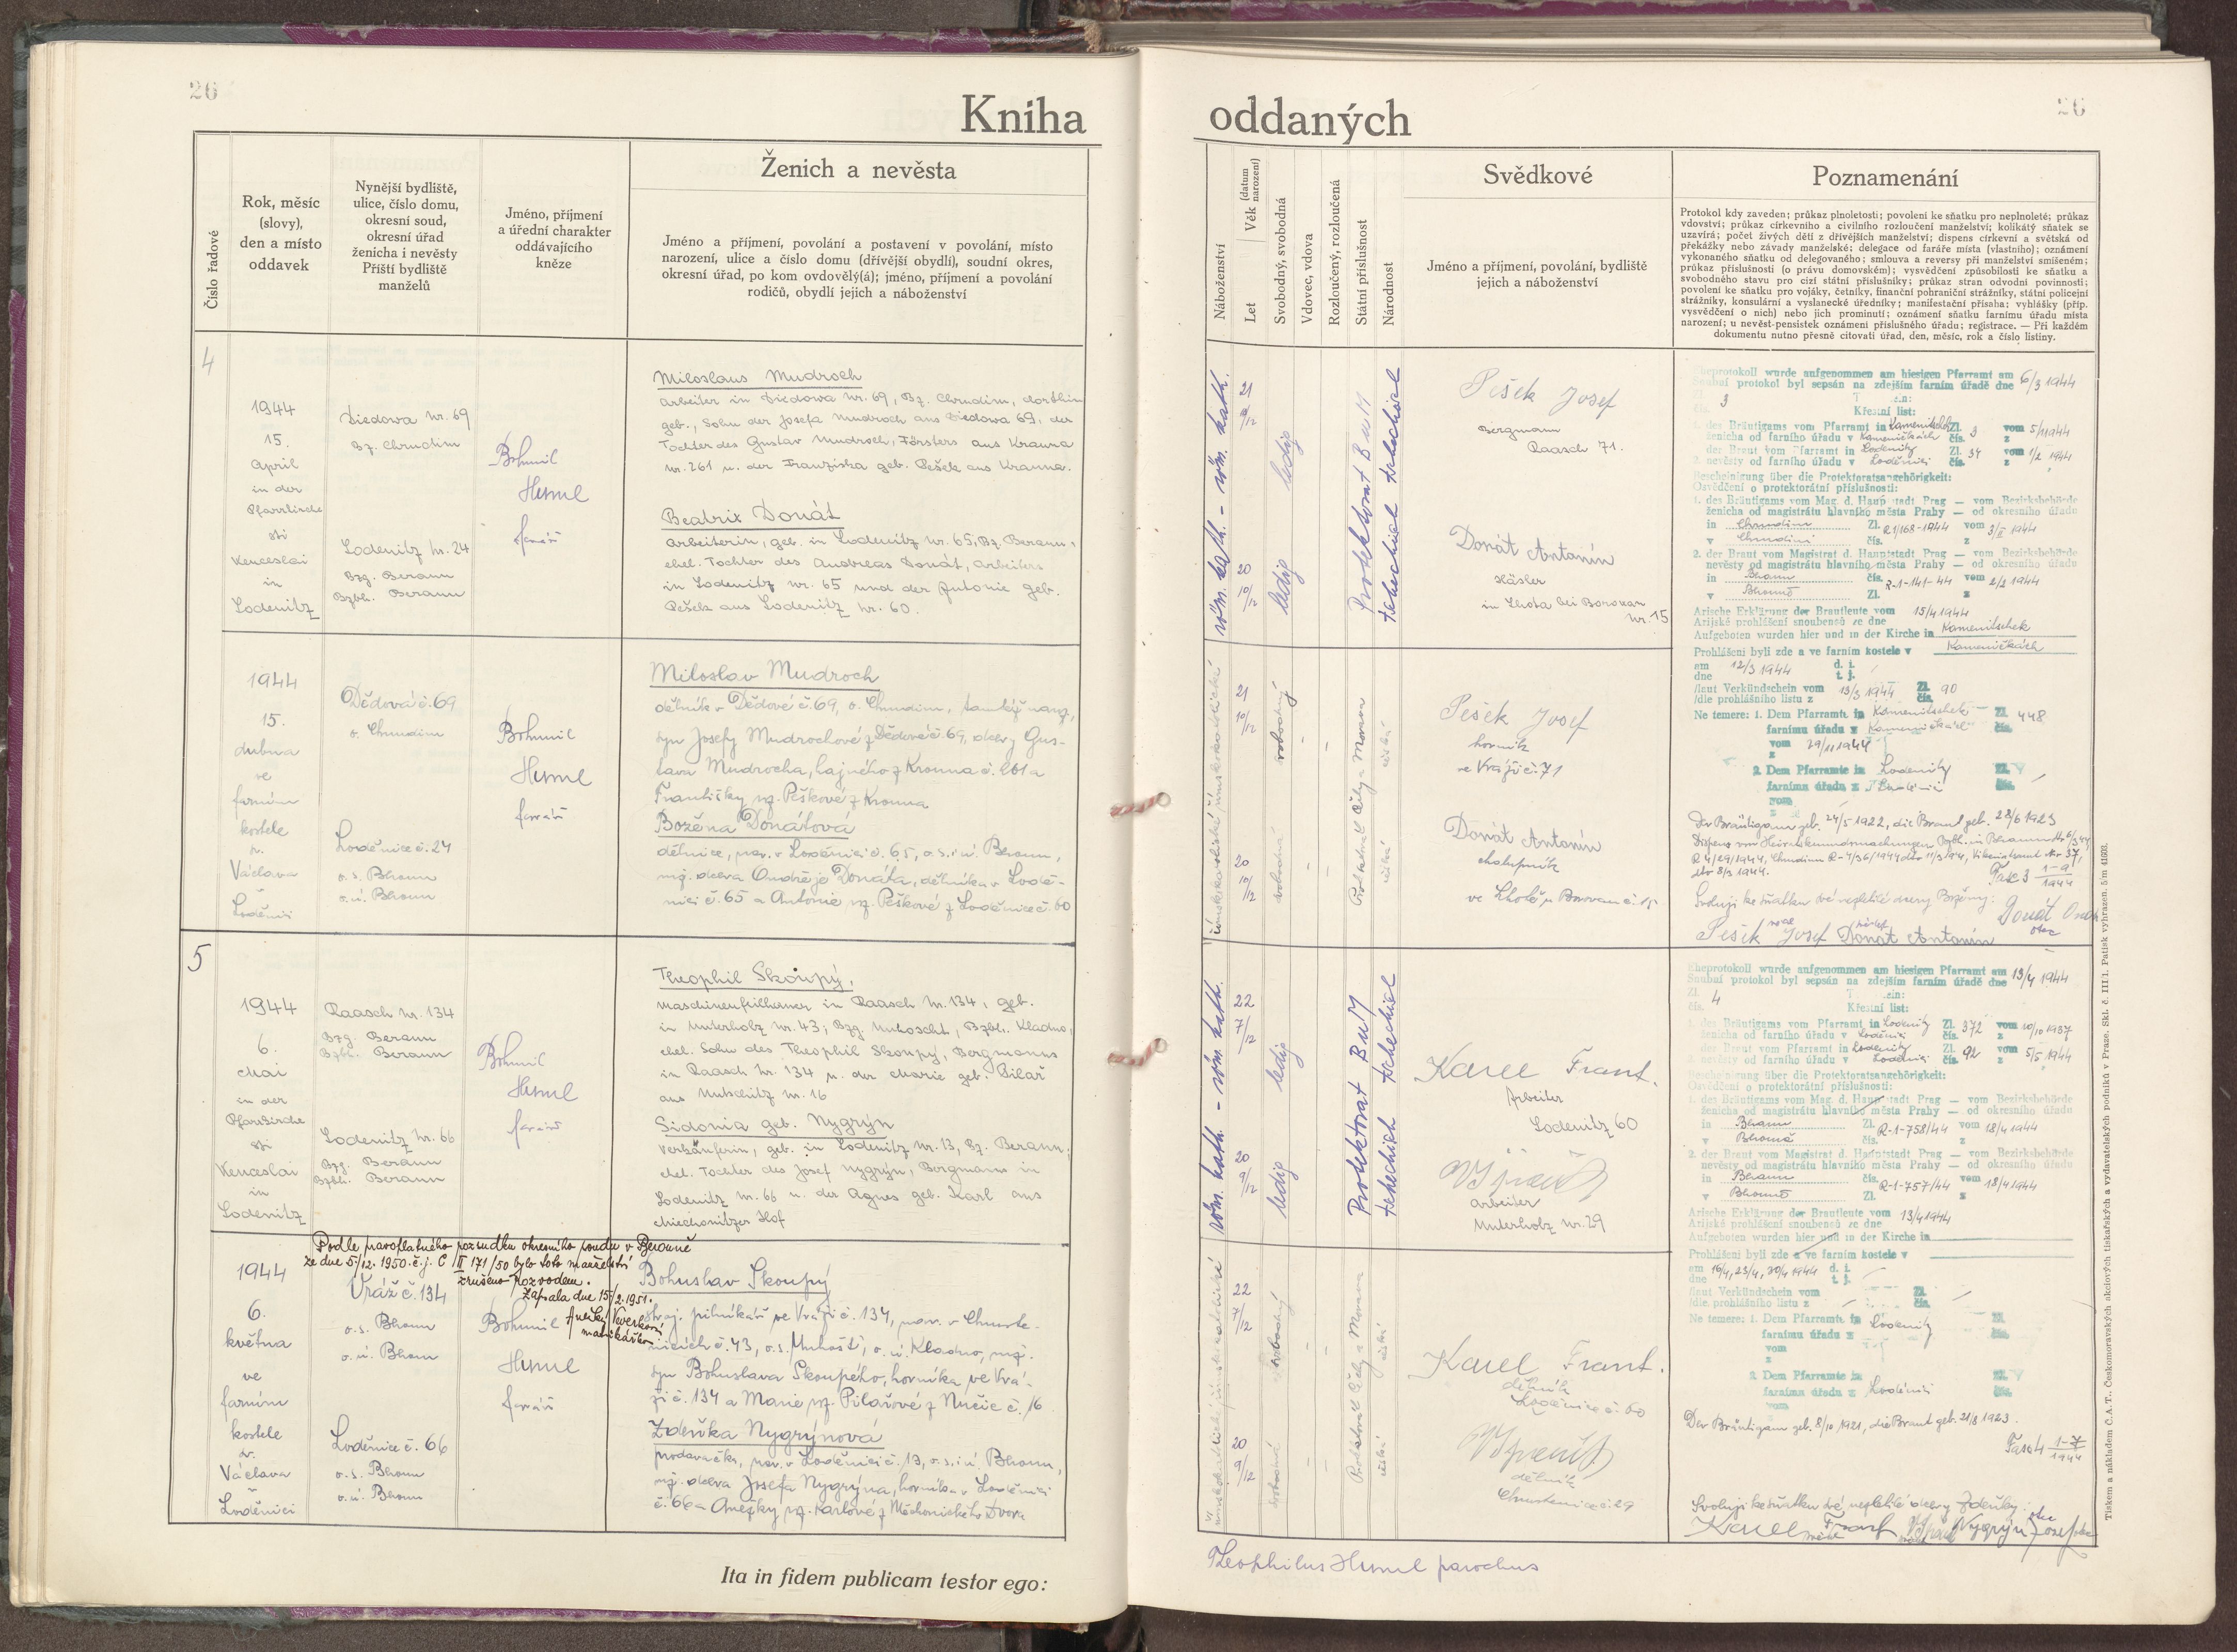 26
Kniha
Číslo řadové
Rok, měsíc
(slovy),
den a místo
oddavek
Nynější bydliště,
ulice, číslo domu,
okresní soud,
okresní úřad
ženicha i nevěsty
Příští bydliště
manželů
Jméno, příjmení
a úřední charakter
oddávajícího
kněze
Ženich a nevěsta
Jméno a příjmení, povolání a postavení v povolání, místo
narození, ulice a číslo domu (dřívější obydlí), soudní okres,
okresní úřad, po kom ovdověl(á); jméno, příjmení a povolání
rodičů, obydlí jejich a náboženství
4
1944
15.
April
in der
Pfarrkirche
Sti
Venceslai
in
Lodenitz
Diedowa Nr. 69
Bz. Chrudim
Lodenitz Nr. 24
Bzg. Beraun
Bzbh. Beraun
Bohumil
Hyml
farář
Miloslaus Mudroch
Arbeiter in Diedowa Nr. 69, Bz. Chrudim, dorthin
geb., Sohn der Josefa Mudroch aus Diedowa 69, der
Tochter des Gustav Mudroch, Försters aus Krauna
Nr. 261 u. der Franziska geb. Pešek aus Krauna.
Beatrix Donát
Arbeiterin, geb. in Lodenitz Nr. 65, Bz. Beraun,
ehel. Tochter des Andreas Donát, Arbeiters
in Lodenitz Nr. 65 und der Antonie geb.
Pešek aus Lodenitz Nr. 60.
1944
15.
dubna
ve
farním
kostele
sv.
Václava
v
Loděnici
Dědová č. 69
o. Chrudim
Loděnice č. 24
o.s. Beroun
o.ú. Beroun
Bohumil
Hyml
farář
Miloslav Mudroch
dělník v Dědové č. 69, o. Chrudim, tamtéž nar.,
syn Josefy Mudrochové z Dědové č. 69, dcery Gus-
tava Mudrocha, hajného z Krouna č. 261 a
Františky roz. Peškové z Krouna
Božena Donátová
dělnice, nar. v Loděnici č. 65, o.s. i ú. Beroun,
mž. dcera Ondřeje Donáta, dělníka v Lodě-
nici č. 65 a Antonie roz. Peškové z Loděnice č. 60
5
1944
6.
Mai
in der
Pfarrkirche
Sti
Venceslai
in
Lodenitz
Raasch Nr. 134
Bzg. Beraun
Bzbh. Beraun
Lodenitz Nr. 66
Bzg. Beraun
Bzbh. Beraun
Bohumil
Hyml
farář
Theophil Skoupý,
Maschinenfeilhauer in Raasch Nr. 134, geb.
in Unterholz Nr. 43, Bzg. Unhoscht, Bzbh. Kladno,
ehel. Sohn des Theophil Skoupý, Bergmanns
in Raasch Nr. 134 u. der Marie geb. Pilař
aus Nutschitz Nr. 16
Sidonia geb. Nygrýn
Verkäuferin, geb. in Lodenitz Nr. 13, Bz. Beraun,
ehel. Tochter des Josef Nygrýn, Bergmanns in
Lodenitz Nr. 66 u. der Agnes geb. Karl aus
Miechonitzer Hof
Podle pravoplatného rozsudku okresního soudu v Berouně
ze dne 5./12. 1950 č.j. C II 171/50 bylo toto manželství
zrušeno rozvodem.
Zapsala dne 15/2. 1951.
matrikářka
1944
6.
května
ve
farním
kostele
sv.
Václava
v
Loděnici
Vráž č. 134
o.s. Beroun
o.ú. Beroun
Loděnice č. 66
o.s. Beroun
o.ú. Beroun
Bohumil
Hyml
farář
Bohuslav Skoupý
stroj. pilníkář ve Vráži č. 134, nar. v Chruste-
nicích č. 43, o.s. Unhošť, o.ú. Kladno, mž.
syn Bohuslava Skoupého, horníka ve Vrá-
ži č. 134 a Marie roz. Pilařové z Nučic č. 16
Zdeňka Nygrýnová
prodavačka, nar. v Loděnici č. 13, o.s. i ú. Beroun,
mž. dcera Josefa Nygrýna, horníka v Loděnici
č. 66 a Anežky roz. Karlové z Měchonického Dvora
Ita in fidem publicam testor ego:
26
oddaných
Náboženství
Let
Věk (datum narození)
Svobodný, svobodná
Vdovec, vdova
Rozloučený, rozloučená
Státní příslušnost
Národnost
Svědkové
Jméno a příjmení, povolání, bydliště
jejich a náboženství
Poznamenání
Protokol kdy zaveden; průkaz plnoletosti; povolení ke sňatku pro neplnoleté; průkaz
vdovství; průkaz církevního a civilního rozloučení manželství; kolikátý sňatek se
uzavírá; počet živých dětí z dřívějších manželství; dispens církevní a světská od
překážky nebo závady manželské; delegace od faráře místa (vlastního); oznámení
vykonaného sňatku od delegovaného; smlouva a reversy při manželství smíšeném;
průkaz příslušnosti (o právu domovském); vysvědčení způsobilosti ke sňatku a
svobodného stavu pro cizí státní příslušníky; průkaz stran odvodní povinnosti;
povolení ke sňatku pro vojáky, četníky, finanční pohraniční strážníky, státní policejní
strážníky, konsulární a vyslanecké úředníky; manifestační přísaha; vyhlášky (příp.
vysvědčení o nich) nebo jich prominutí; oznámení sňatku farnímu úřadu místa
narození; u nevěst-pensistek oznámení příslušného úřadu; registrace. — Při každém
dokumentu nutno přesně citovati úřad, den, měsíc, rok a číslo listiny.
röm. kath. - röm. kath.
21
10/12
20
10/12
ledig
ledig
Protektorat B u M
tschechisch tschechisch
Pešek Josef
Bergmann
Raasch 71.
Donát Antonín
Häsler
in Lhota bei Borowan
Nr. 15
Eheprotokoll wurde aufgenommen am hiesigen Pfarramt am 6/3 1944
Snubní protokol byl sepsán na zdejším farním úřadě dne
Zl. 3
čís.
Křestní list:
1. des Bräutigams vom Pfarramt in Kamenitschek Zl. 3 vom 5/1 1944
ženicha od farního úřadu v Kameničkách čís. z
der Braut vom Pfarramt in Lodenitz Zl. 34 vom 1/2 1944
2. nevěsty od farního úřadu v Loděnici čís. z
Bescheinigung über die Protektoratsangehörigkeit:
Osvědčení o protektorátní příslušnosti:
1. des Bräutigams vom Mag. d. Hauptstadt Prag — vom Bezirksbehörde
ženicha od magistrátu hlavního města Prahy — od okresního úřadu
in Chrudim Zl. R1/168-1944 vom 3/2 1944
v Chrudimi čís. z
2. der Braut vom Magistrat d. Hauptstadt Prag — vom Bezirksbehörde
nevěsty od magistrátu hlavního města Prahy — od okresního úřadu
in Beraun čís. R-1-141-44 vom 2/2 1944
v Berouně Zl. z
Arische Erklärung der Brautleute vom 15/4 1944
Arijské prohlášení snoubenců ze dne
Aufgeboten wurden hier und in der Kirche in Kamenitschek
Prohlášeni byli zde a ve farním kostele v Kameničkách
am 12/3 1944 d. i.
dne t. j.
/laut Verkündschein vom 13/3 1944 Zl. 90
/dle prohlášního listu z čís.
Ne temere: 1. Dem Pfarramte in Kamenitschek Zl. 448
farnímu úřadu z Kameničkách čís.
vom 29/11 1944
z
2. Dem Pfarramte in Lodenitz Zl.
farnímu úřadu z Loděnici čís.
vom
Der Bräutigam geb. 24/5 1922, die Braut geb. 22/6 1923
Fasc 3 1-9/1944
Svoluji ke sňatku své nezletilé dcery Boženy:
Pešek Josef Donát Antonín
otec
římskokatolické římskokatolické
21
10/12
20
10/12
svobodný
svobodná
Protektorát Čechy a Morava
česká
česká
Pešek Josef
horník
ve Vráži č. 71
Donát Antonín
chalupník
ve Lhotě u Borovan č. 15
röm. kath. - röm. kath.
22
7/12
20
9/12
ledig
ledig
Protektorat B u M
tschechisch tschechisch
Karel Frant.
Arbeiter
Lodenitz 60
Arbeiter
Unterholz Nr. 29
Eheprotokoll wurde aufgenommen am hiesigen Pfarramt am 13/4 1944
Snubní protokol byl sepsán na zdejším farním úřadě dne
Zl. 4
čís.
Křestní list:
1. des Bräutigams vom Pfarramt in Lodenitz Zl. 372 vom 10/10 1937
ženicha od farního úřadu v Loděnici čís. z
der Braut vom Pfarramt in Lodenitz Zl. 92 vom 5/5 1944
2. nevěsty od farního úřadu v Loděnici čís. z
Bescheinigung über die Protektoratsangehörigkeit:
Osvědčení o protektorátní příslušnosti:
1. des Bräutigams vom Mag. d. Hauptstadt Prag — vom Bezirksbehörde
ženicha od magistrátu hlavního města Prahy — od okresního úřadu
in Beraun Zl. R-1-758/44 vom 18/4 1944
v Berouně čís. z
2. der Braut vom Magistrat d. Hauptstadt Prag — vom Bezirksbehörde
nevěsty od magistrátu hlavního města Prahy — od okresního úřadu
in Beraun čís. R-1-757/44 vom 18/4 1944
v Berouně Zl. z
Arische Erklärung der Brautleute vom 13/4 1944
Arijské prohlášení snoubenců ze dne
Aufgeboten wurden hier und in der Kirche in
Prohlášeni byli zde a ve farním kostele v
am 16/4, 23/4, 30/4 1944 d. i.
dne t. j.
/laut Verkündschein vom Zl.
/dle prohlášního listu z čís.
Ne temere: 1. Dem Pfarramte in Lodenitz Zl.
farnímu úřadu z čís.
vom
z
2. Dem Pfarramte in Zl.
farnímu úřadu z Loděnici čís.
vom
Der Bräutigam geb. 8/10 1921, die Braut geb. 21/8 1923.
Fasc 4 1-7/1944
Svoluji ke sňatku své nezletilé dcery Zdeňky:
Karel Frant Nygrýn Josef otec
římskokatolické římskokatolické
22
7/12
20
9/12
svobodný
svobodná
Protektorát Čechy a Morava
česká
česká
Karel Frant.
dělník
Loděnice č. 60
dělník
Chrustenice č. 29
Theophilus Hyml parochus
Tiskem a nákladem Č.A.T., Českomoravských akciových tiskařských a vydavatelských podniků v Praze. Skl. č. III 1. Patisk vyhrazen.